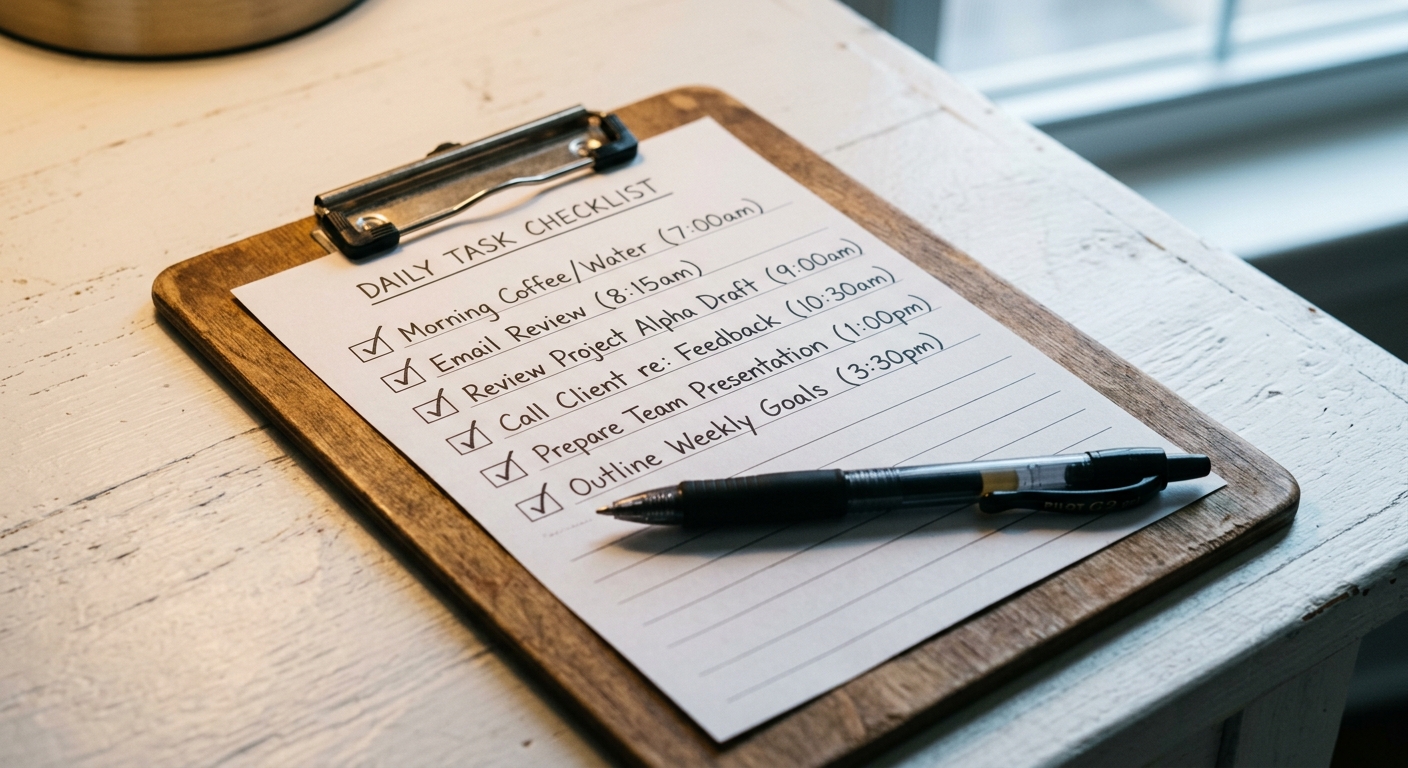 DAILY TASK CHECKLIST
Morning Coffee/Water (7:00am)
Email Review (8:15am)
Review Project Alpha Draft (9:00am)
Call Client re: Feedback (10:30am)
Prepare Team Presentation (1:00pm)
Outline Weekly Goals (3:30pm)
PILOT G2